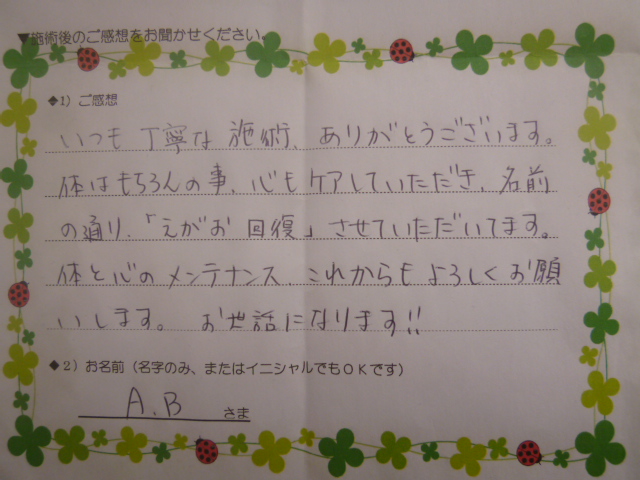 ▼施術後のご感想をお聞かせください。
◆1）ご感想
いつも丁寧な施術、ありがとうございます。
体はもちろんの事、心もケアしていただき、名前
の通り、「えがお回復」させていただいてます。
体と心のメンテナンス、これからもよろしくお願
いします。お世話になります!!
◆2）お名前（名字のみ、またはイニシャルでもOKです）
A.B さま